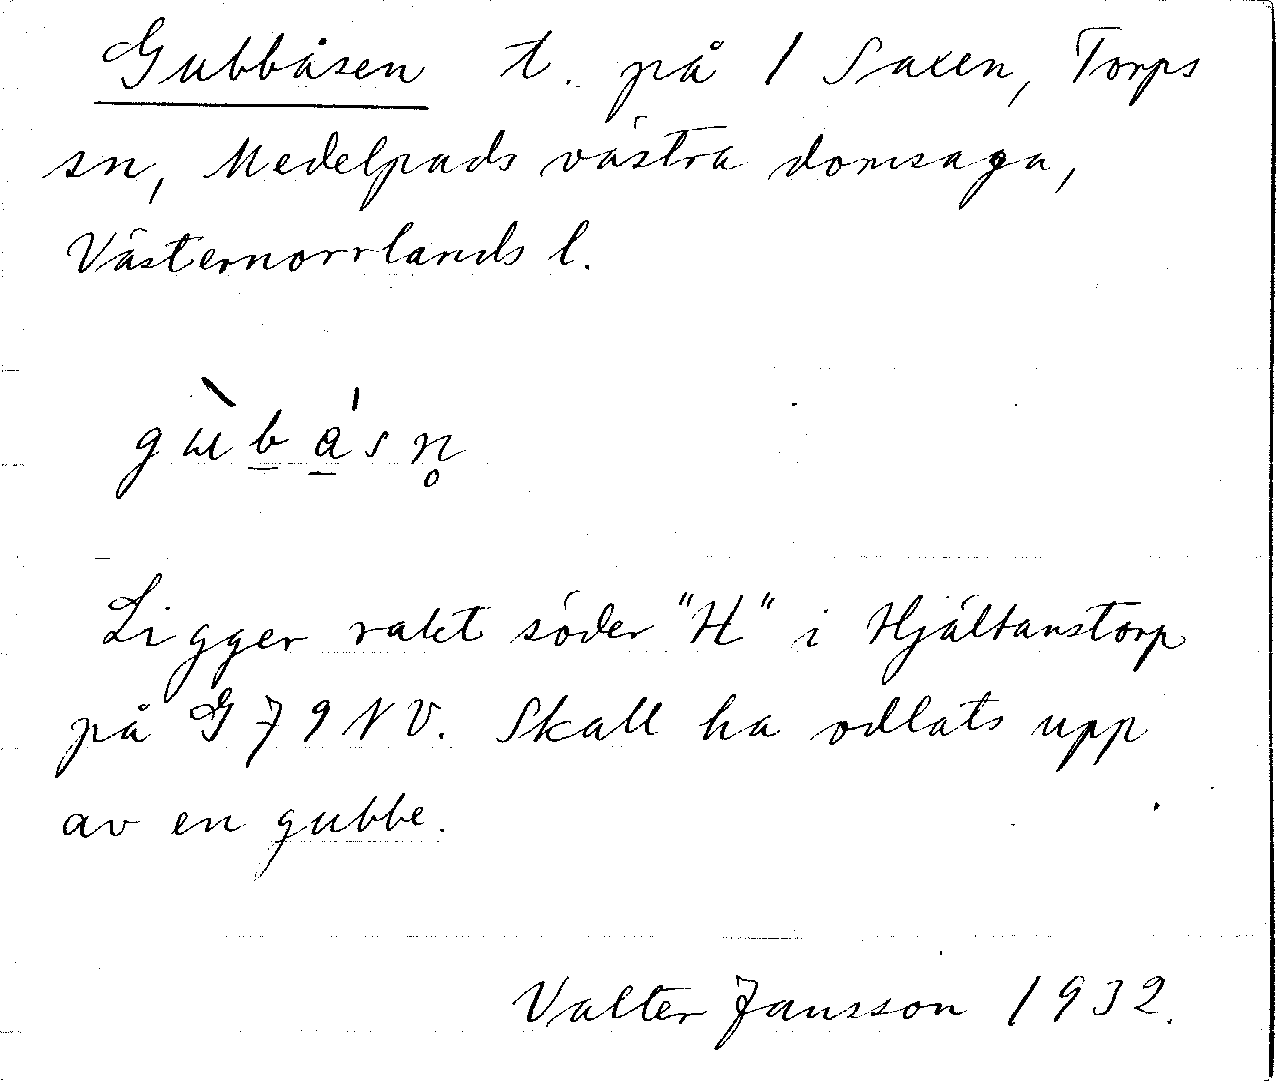 Gubbåsen t. på 1 Saxen, Torps
sn, Medelpads västra domsaga,
Västernorrlands l.
gùb̲a̲̍sn̥
Ligger rakt söder "H" i Hjältanstorp
på G79NV. Skall ha odlats upp
av en gubbe.
Valter Jansson 1932.